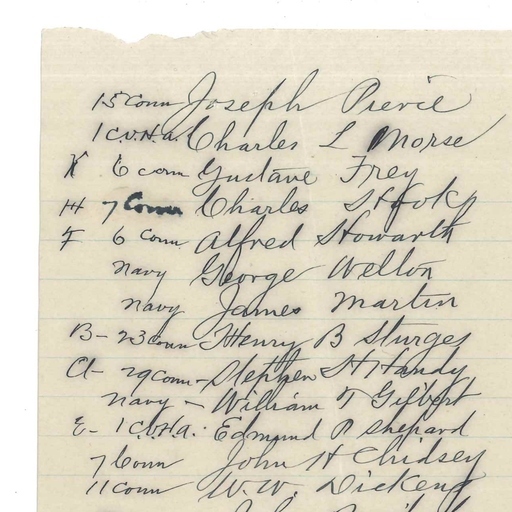 15 Conn Joseph Pierce
1 C.V.H.A. Charles L Morse
K 6 conn Gustave Frey
H 7 Conn Charles
F 6 Conn Alfred Howarth
Navy George Welton
Navy James Martin
B- 23 Conn Henry B Sturges
A- 29 Conn- Stephen H Handy
Navy - William T Gilbert
E- 1 C.V.H.A. Edmund P Shepard
7 Conn John H Chidsey
11 Conn W.W. Dickens
John